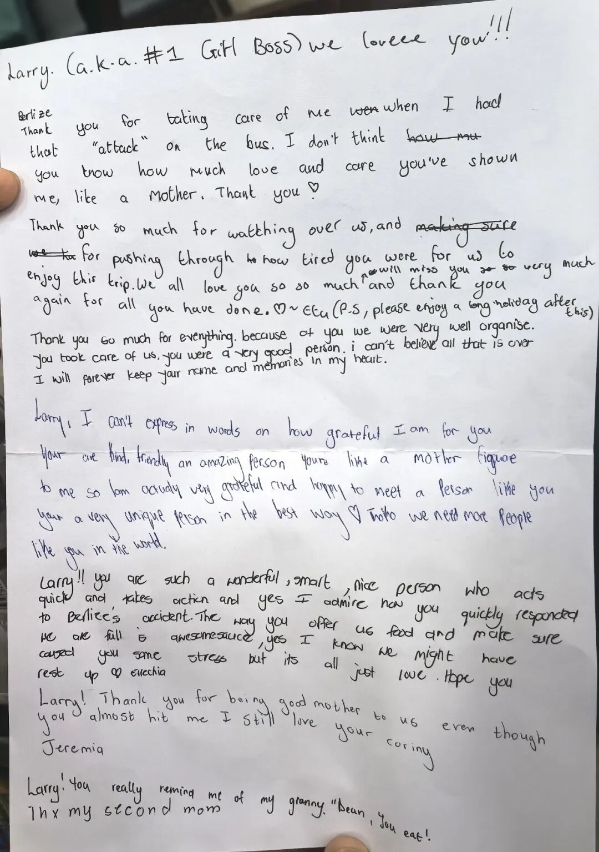 Larry. (a.k.a. #1 Girl Boss) we loveee you!!!
Berlize
Thank you for taking care of me when I had
that "attack" on the bus. I don't think
you know how much love and care you've shown
me, like a Mother. Thank you ♡
Thank you so much for watching over us, and making sure
for pushing through how tired you were for us to
enjoy this trip. We all love you so so much and will miss you very much and thank you
again for all you have done. ♡ ~ Etu (P.S, please enjoy a long holiday after this)
Thank you so much for everything. because of you we were very well organise.
You took care of us. you were a very good person. i can't believe all that is over
I will forever keep your name and memories in my heart.
Larry, I can't express in words on how grateful I am for you
Your are kind, friendly an amazing person youre like a mother figure
to me so Iam actually very grateful and happy to meet a Person like you
your a very unique person in the best way ♡ we need more People
like you in the world.
Larry!! you are such a wonderful, smart, nice person who acts
quick and takes action and yes I admire how you quickly responded
to Berliee's accident. The way you offer us food and make sure
we are full is awesomesauce, yes I know we might have
caused you some stress but its all just love. Hope you
rest up ♡
Larry! Thank you for being good mother to us even though
you almost hit me I still love your caring
Jeremia
Larry! You really remind me of my granny. "Dean, you eat!
Thx my second mom